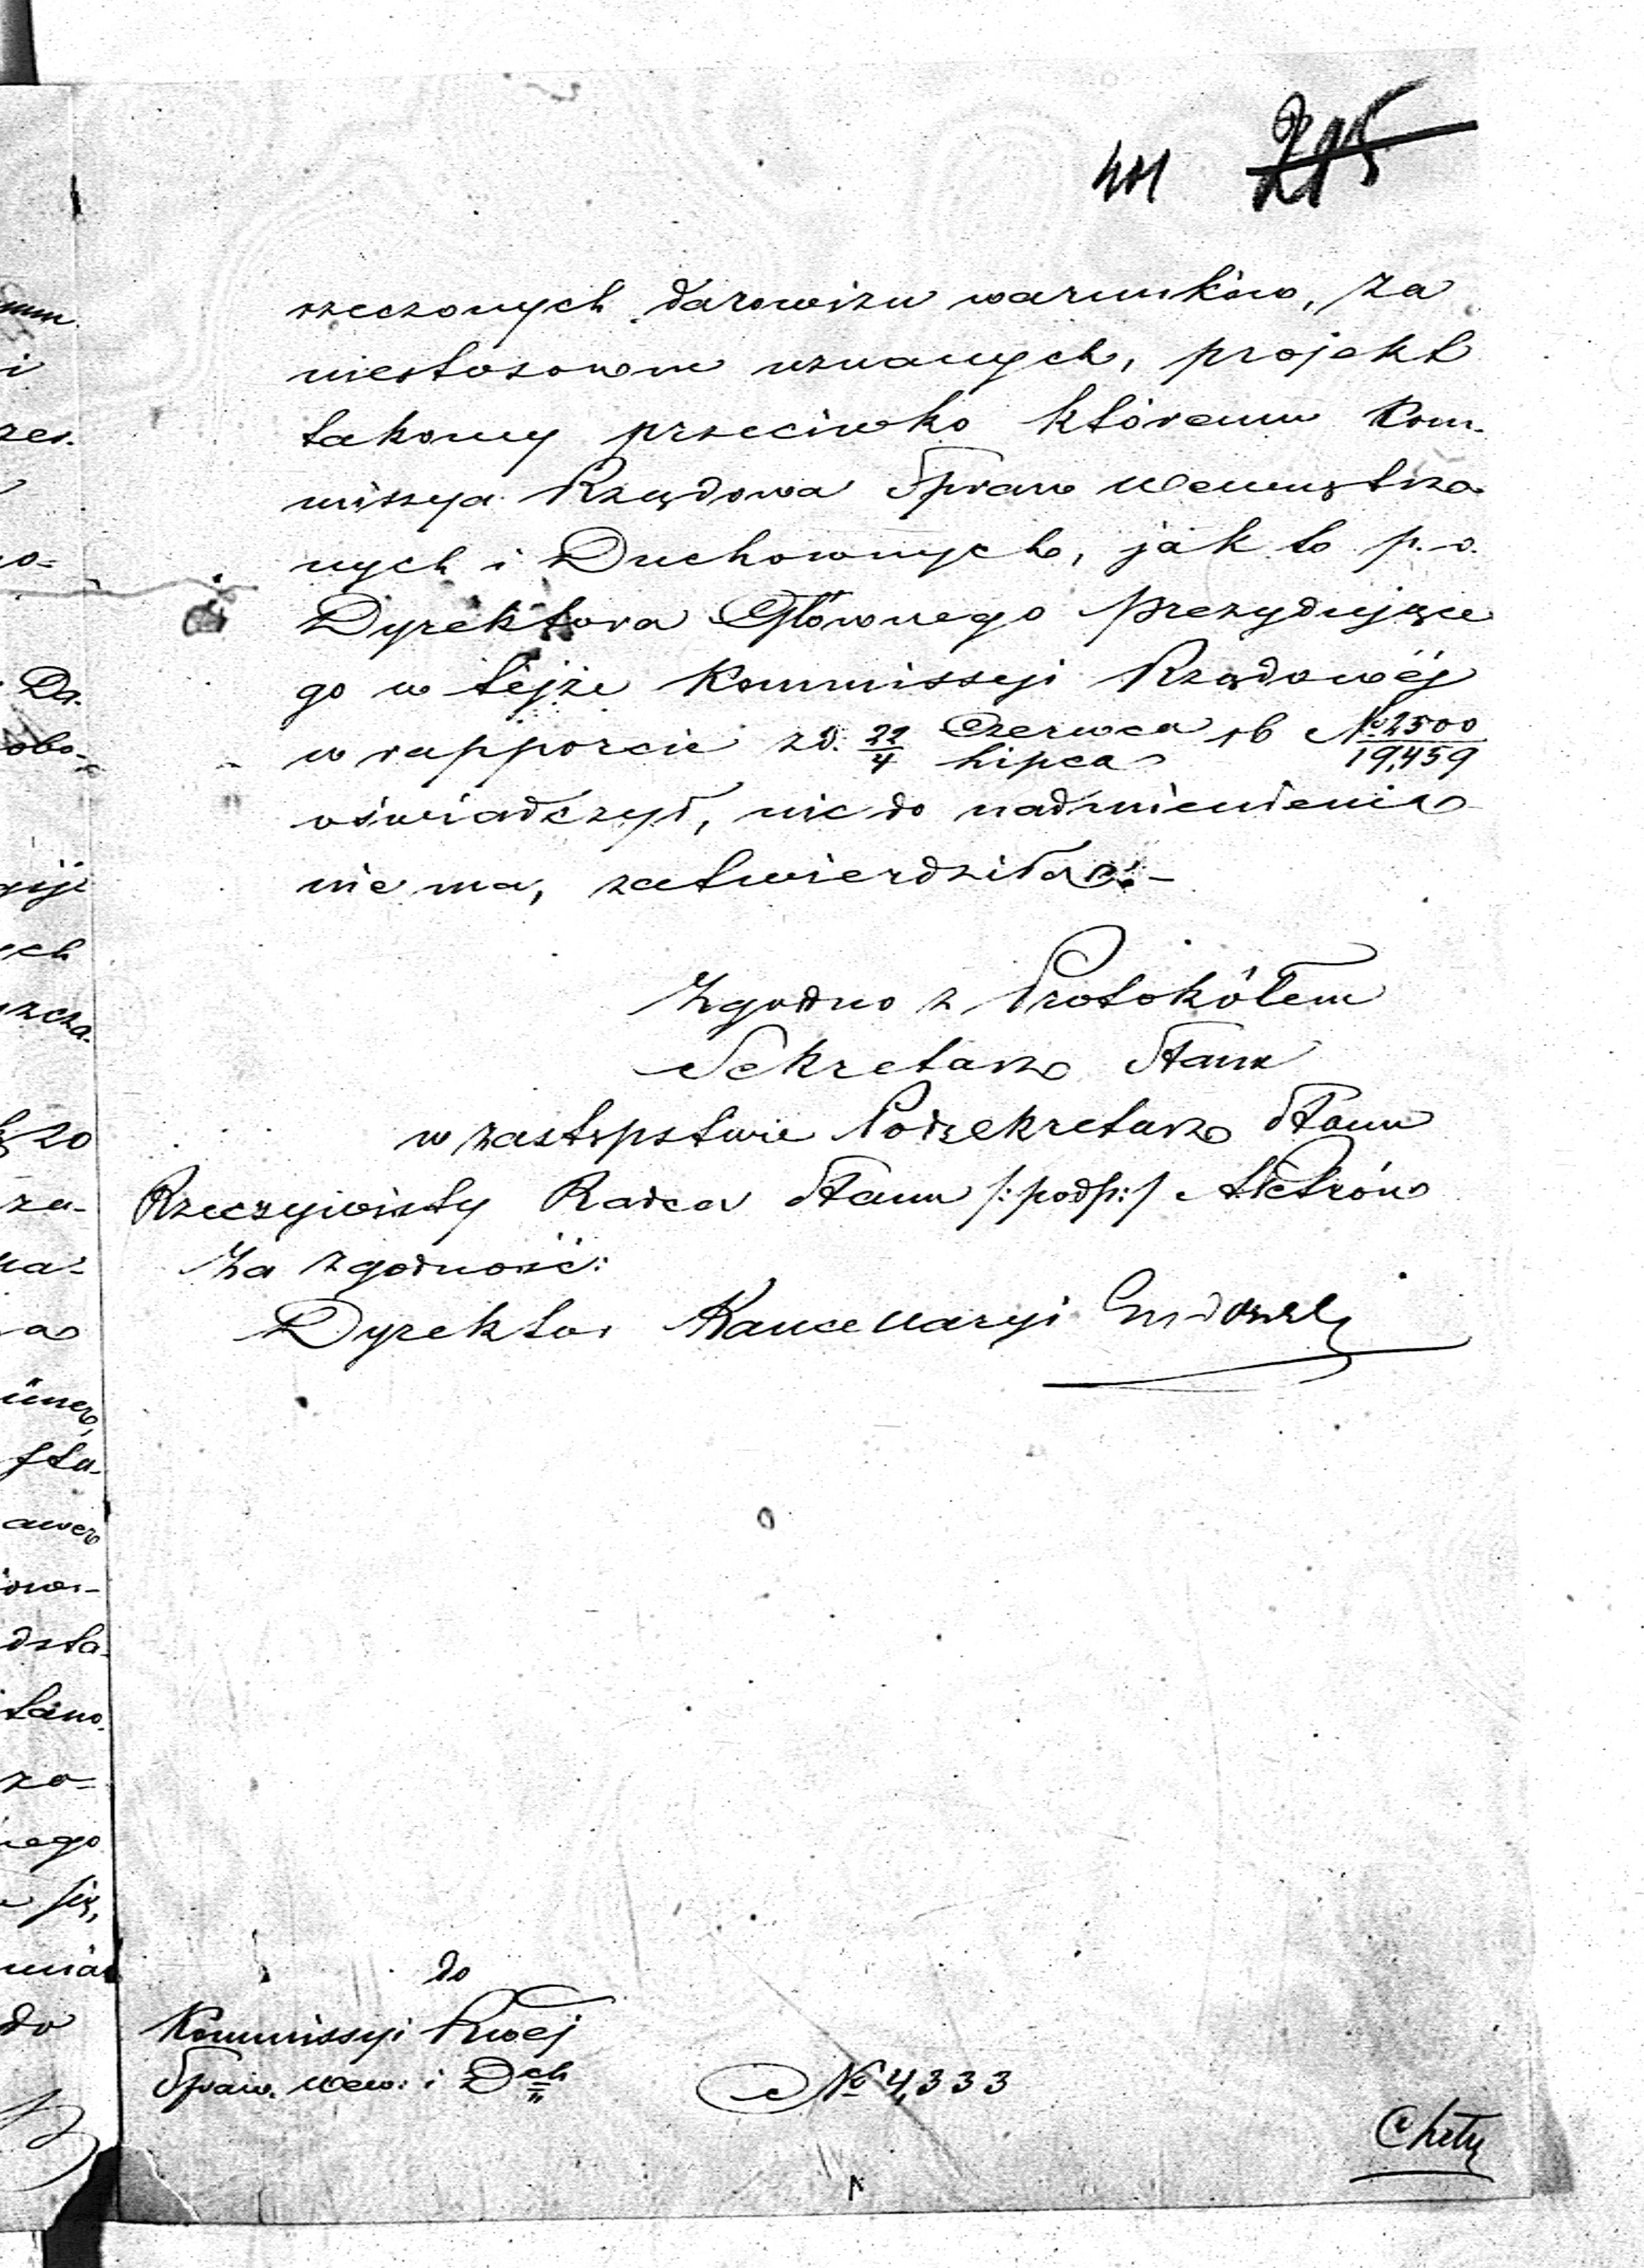 411 215
rzeczonych darowizn warunków, za
niestosowne uznanych, projekt
takowy przeciwko któremu Kom-
missya Rządowa Spraw Wewnętrz-
nych i Duchownych, jak to p. o.
Dyrektora Głównego prezydujące
go w tejże Kommissyi Rządowéj
w rapporcie z d. 22/4 Czerwca/Lipca rb No 2500/19,459
oświadczył, nic do nadmienienia
nie ma, zatwierdziła.-
Zgodno z Protokółem
Sekretarz Stanu
w zastępstwie Podsekretarz Stanu
Rzeczywisty Radca Stanu /: podp :/ Petrów
Za zgodność:
Dyrektor Kancellaryi
do
Kommissyi Rwej
Spraw. Wew: i Dch
No 4,333